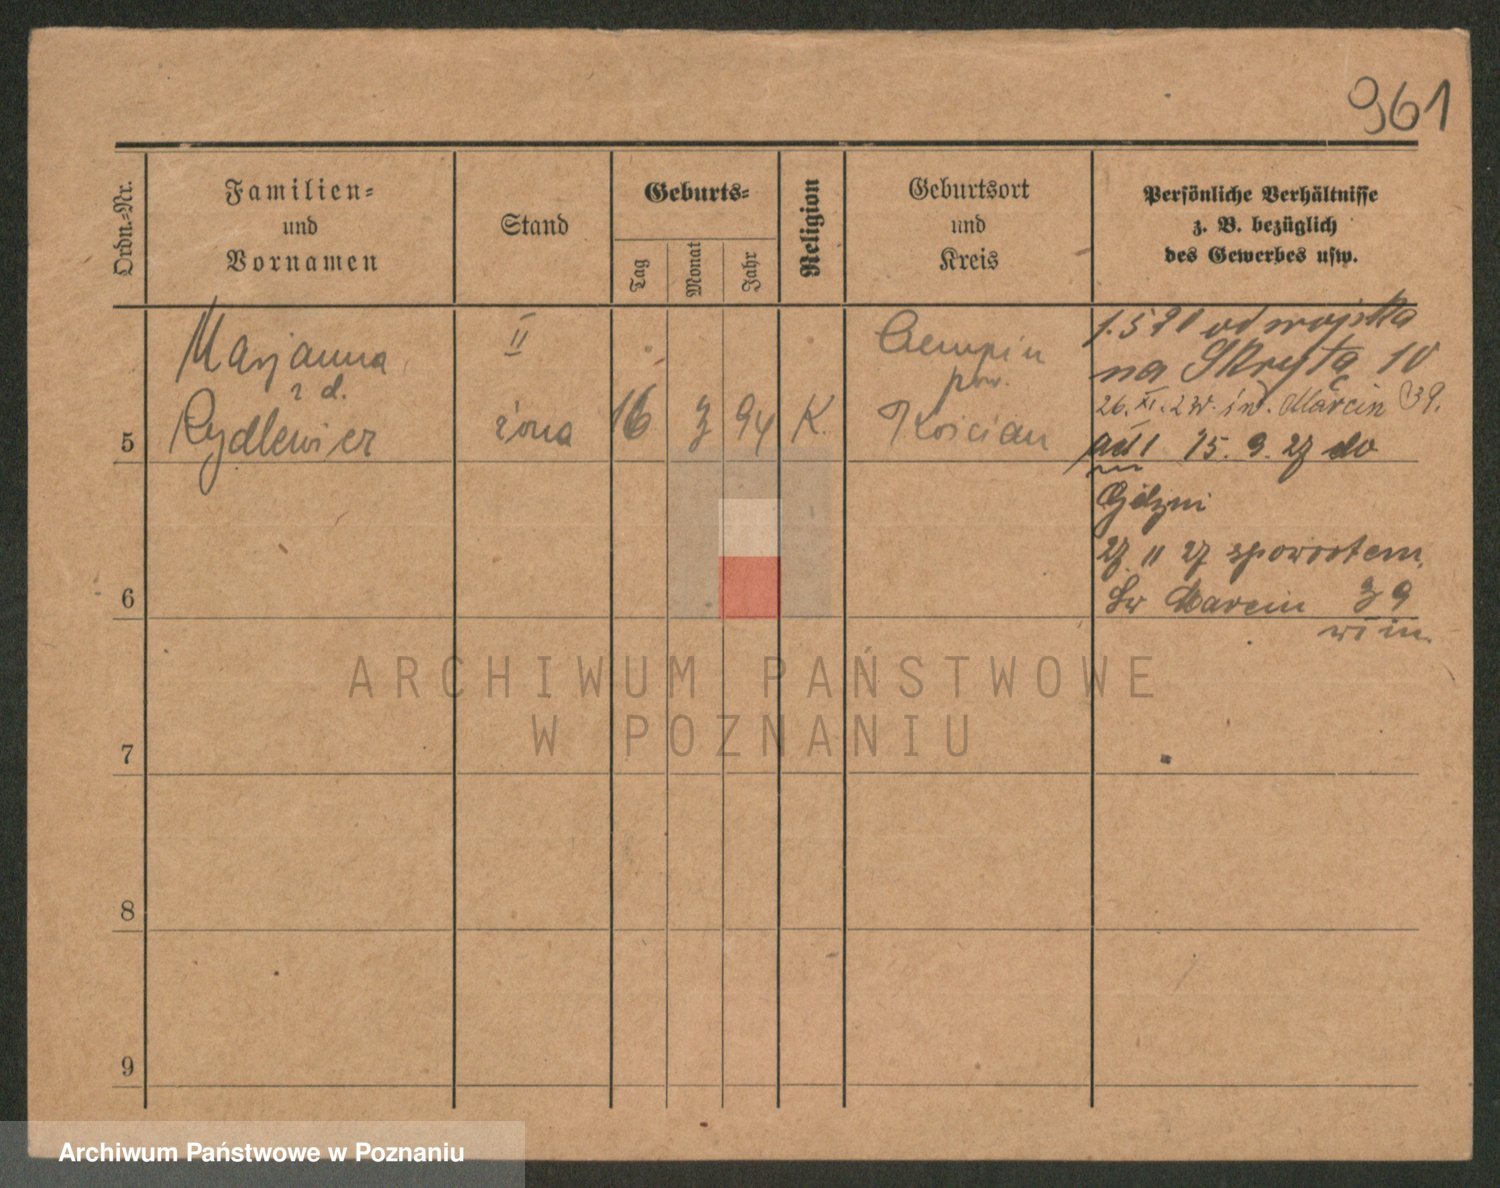 961
Ordn.-Nr.
Familien-
und
Vornamen
Stand
Geburts-
Tag
Monat
Jahr
Religion
Geburtsort
und
Kreis
Persönliche Verhältnisse
z. B. bezüglich
des Gewerbes usw.
Marjanna
z d.
Rydlewicz
II
żona
16
3
94
K.
Czempiń
pow.
Kościan
5
1.5 21 od wojska
na Skryta 10
26. XI. 2 św. Marcin 39.
15. 9. 27 do
Gdyni
27 11 27 spowrotem
Św Marcin 39
6
7
8
9
ARCHIWUM PAŃSTWOWE
W POZNANIU
Archiwum Państwowe w Poznaniu